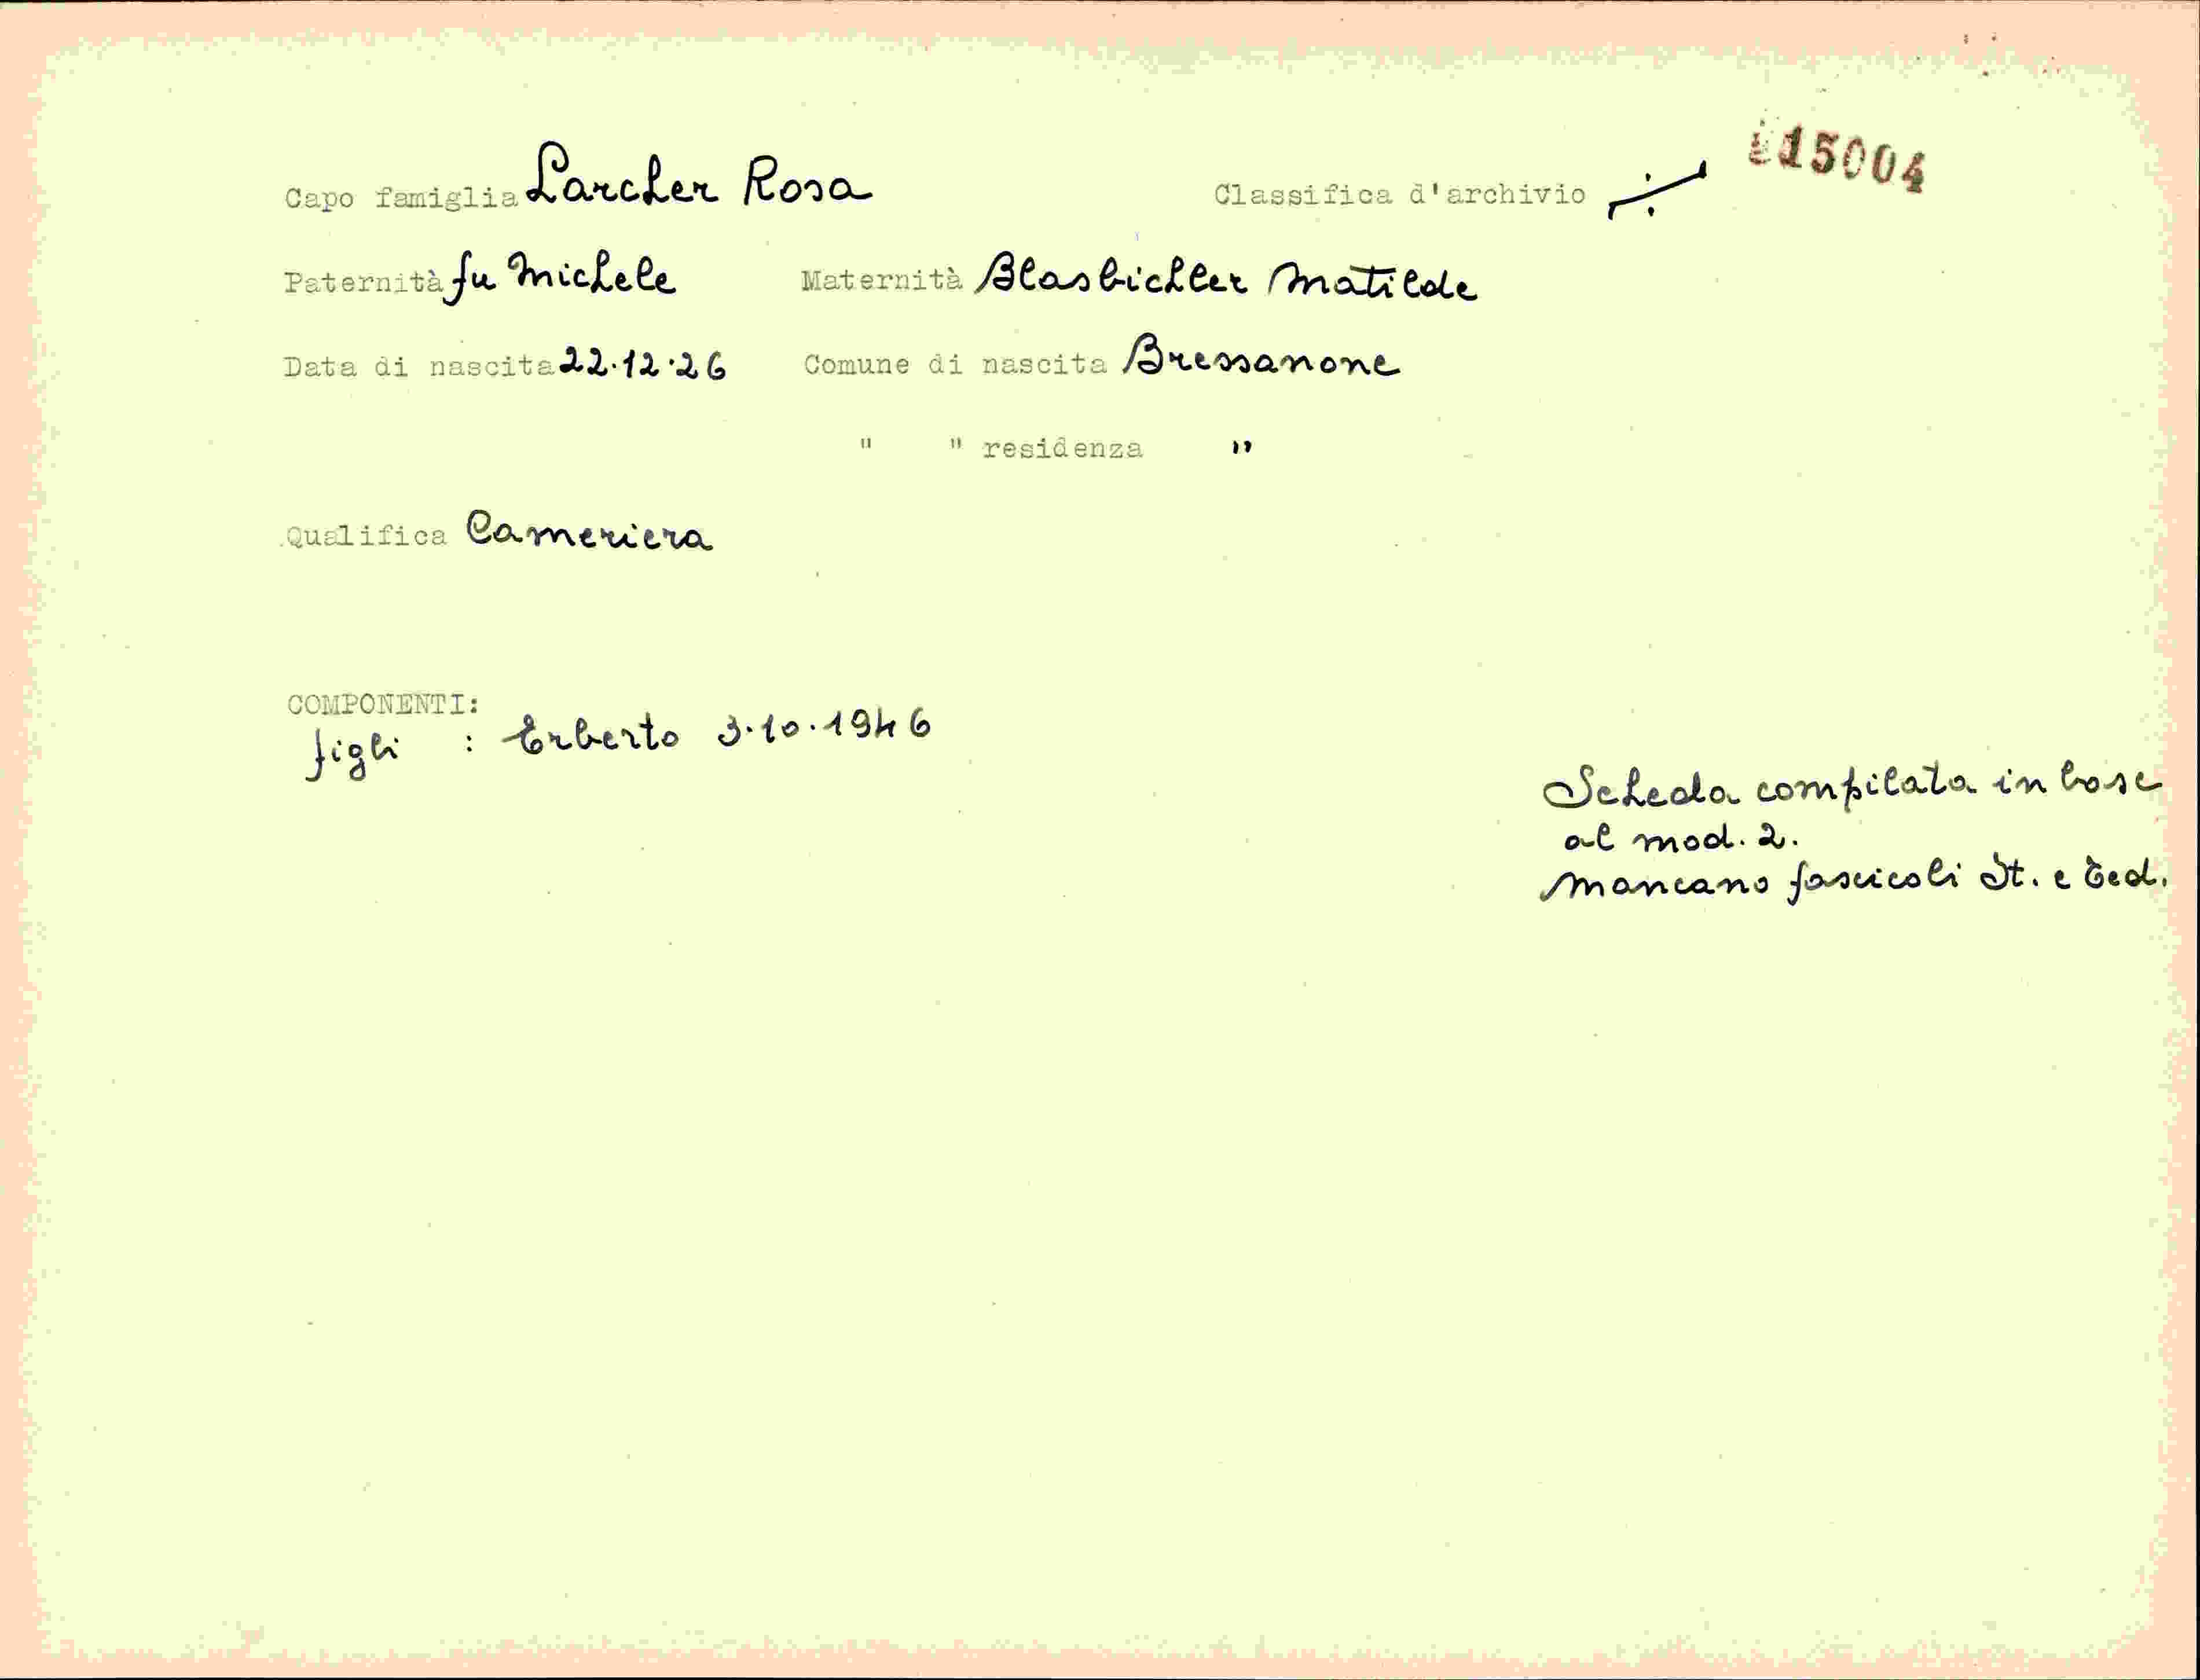 Capo famiglia Larcher Rosa Classifica d'archivio 15004
Paternità fu Michele Maternità Blasbichler Matilde
Data di nascita 22.12.26 Comune di nascita Bressanone
" " residenza "
Qualifica Cameriera
COMPONENTI:
figli : Erberto 3.10.1946
Scheda compilata in base
al mod. 2.
Mancano fascicoli It. e Ted.